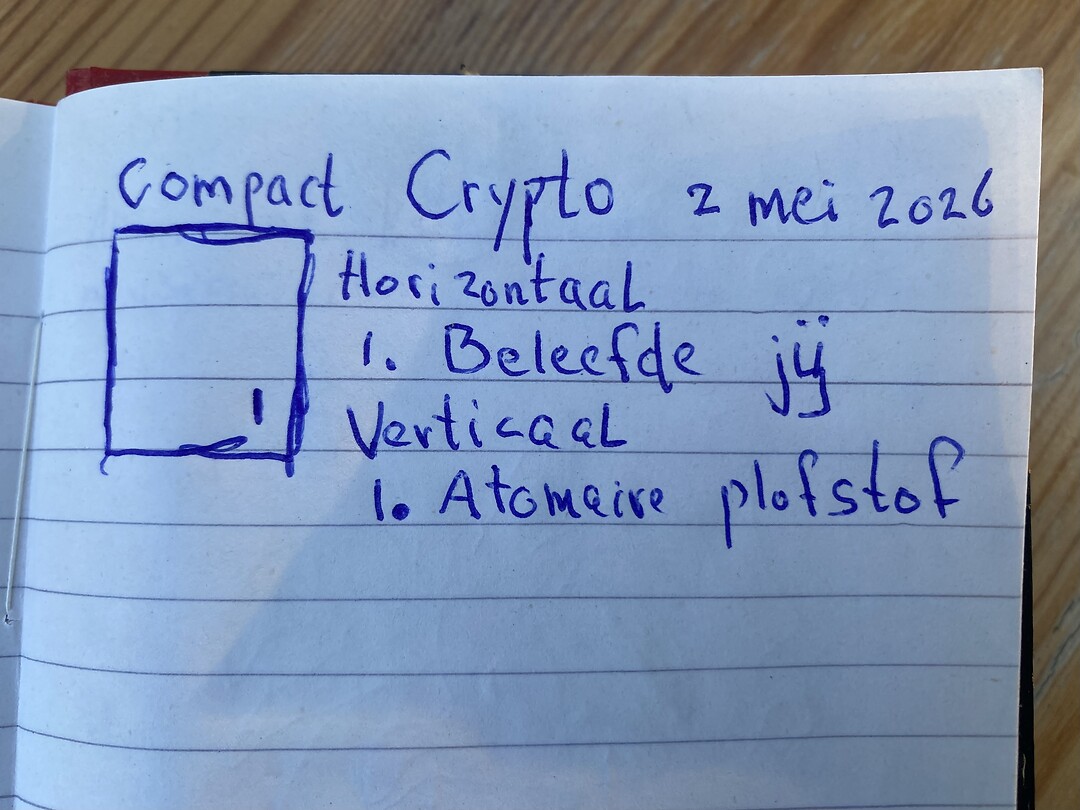 Compact Crypto 2 mei 2026
Horizontaal
1. Beleefde jij
1
Verticaal
1. Atomaire plofstof